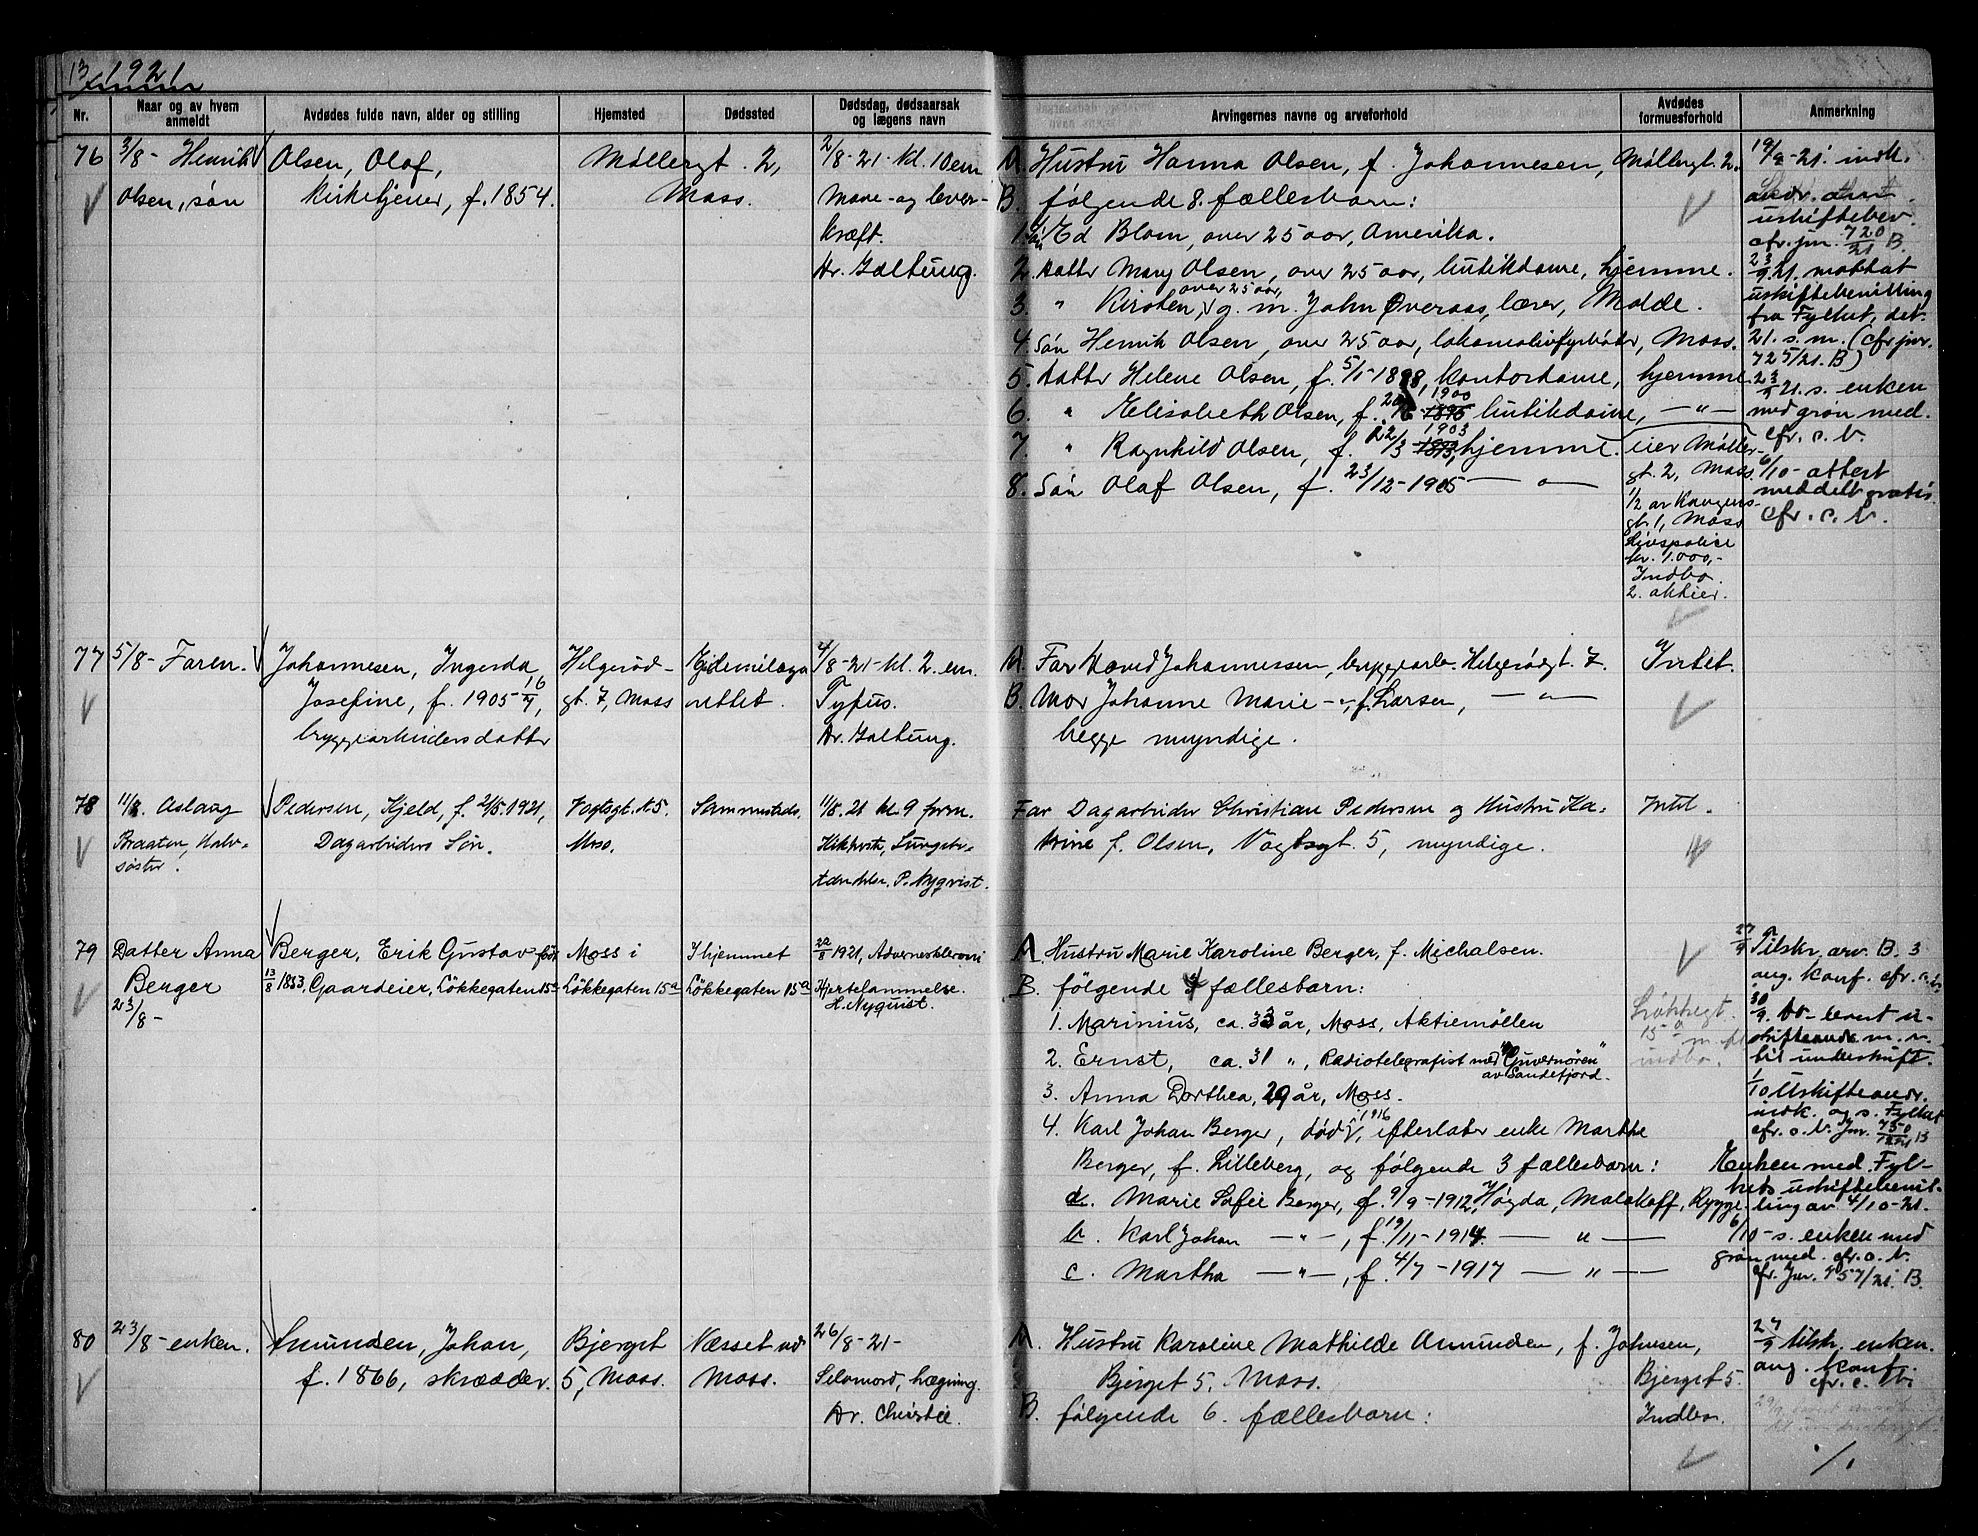 13 1921
Nr.
Naar og av hvem anmeldt
Avdødes fulde navn, alder og stilling
Hjemsted
Dødssted
Dødsdag, dødsaarsak og lægens navn
Arvingernes navne og arveforhold
Avdødes formuesforhold
Anmerkning
76
3/8 - Henrik
Olsen, søn
Olsen, Olaf,
kirketjener, f. 1854.
Møllergt. 2,
Moss.
2/8-21- kl. 10 em
Mave- og lever-
kræft.
Dr. Galtung.
A. Hustru Hanna Olsen, f. Johannesen,
B. følgende 8 fællesbarn:
1. Søn Ed Blom, over 25 aar, Amerika.
2. Datter Mary Olsen, over 25 aar, butikdame, hjemme.
3. " Kirsten, over 25 aar, g. m. John Øveraas, lærer, Molde.
4. Søn Henrik Olsen, over 25 aar, lokomotivfyrbøter, Moss.
5. Datter Helene Olsen, f. 5/1-1898, kontordame, hjemme.
6. " Elisabeth Olsen, f. 1900 butikdame, - " -
7. " Ragnhild Olsen, f. 22/3 1903 hjemme.
8. Søn Olaf Olsen, f. 23/12-1905 - " -
Møllergt. 2.
eier Møller-
gt. 2, Moss
1/2 av Kongens-
gt. 1, Moss
Livspolice
kr. 1.000,-
Indbo.
2. aktier.
19/8-21. indk.
uskiftebev.
cfr. jnr. 720/21 B.
23/9.21. mottat
uskiftebevilling
fra Fylket, dat.
21. s. m. (cfr jnr.
725/21. B)
23/9 21. s. enken
med grøn med.
cfr. c. b.
6/10 - attest
meddelt gratis.
cfr. c. b.
77
5/8 - Faren.
Johannesen, Ingerda
Josefine, f. 1905 16/7,
bryggearbeiders datter
Helgerød-
gt. 7, Moss
Epidemilaza-
rettet.
4/8-21- kl. 2. em.
Tyfus.
Dr. Galtung.
A. Far David Johannessen, bryggearb. Helgerødgt. 7.
B. Mor Johanne Marie - " -, f. Larsen, - " -
begge myndige.
Intet.
78
11/8. Aslaug
Braaten, Halv-
søster.
Pedersen, Kjeld, f. 2/5.1921,
Dagarbeiders Søn.
Vogtsgt. 5.
Moss.
Sammesteds.
11/8. 21 kl. 9 form.
Kikhoste, Lungebe-
tændelse. P. Nyqvist.
Far Dagarbeider Christian Pedersen og Hustru Ka-
trine f. Olsen, Vogtsgt. 5, myndige.
Intet.
79
Datter Anna
Berger
23/8 -
Berger, Erik Gustav født
13/8 1853, Gaardeier, Løkkegaten 15a
Moss i
Løkkegaten 15a
I hjemmet
Løkkegaten 15a
22/8 1921, Aareforkalkning
Hjertelammelse.
H. Nyquist.
A. Hustru Marie Karoline Berger, f. Michalsen.
B. følgende 4 fællesbarn:
1. Marinius, ca. 33 år, Moss, Aktiemøllen
2. Ernst, ca. 31 ", Radiotelegrafist med "Guvernøren"
av Sandefjord.
3. Anna Dorthea, 29 år, Moss.
4. Karl Johan Berger, død 1916, efterlater enke Martha
Berger, f. Lilleberg, og følgende 3 fællesbarn:
a. Marie Sofie Berger, f. 9/9-1912, Høgda, Malakoff, Rygge.
b. Karl Johan - " -, f. 19/11-1914. - " -
c. Martha - " -, f. 4/7-1917 - " -
Løkkegt.
15a
indbo.
27/9 Tilskr. arv. B. 3
ang. konf. cfr. c. b.
30/9. bo- levert u-
skifteandr. m. m.
til underskrift.
1/10 Uskifteandr.
indk. og s. Fylket
cfr. c. b. Jnr. 750/1921 B
Enken med Fyl-
kets uskiftebevil-
ling av 4/10-21.
6/10 - s. enken med
grøn med. cfr. c. b.
cfr. Jnr. 757/21. B.
80
23/8 - enken.
Amunden, Johan,
f. 1866, skrædder.
Bjerget
5, Moss.
Næsset ved
Moss.
26/8-21-
Selvmord, hægning.
Dr. Christie.
A. Hustru Karoline Mathilde Amunden, f. Johnsen,
Bjerget 5, Moss.
B. følgende 6. fællesbarn:
Bjerget 5.
Indbo.
27/9 tilskr. enken.
ang. konf.
cfr. c. b.
./.